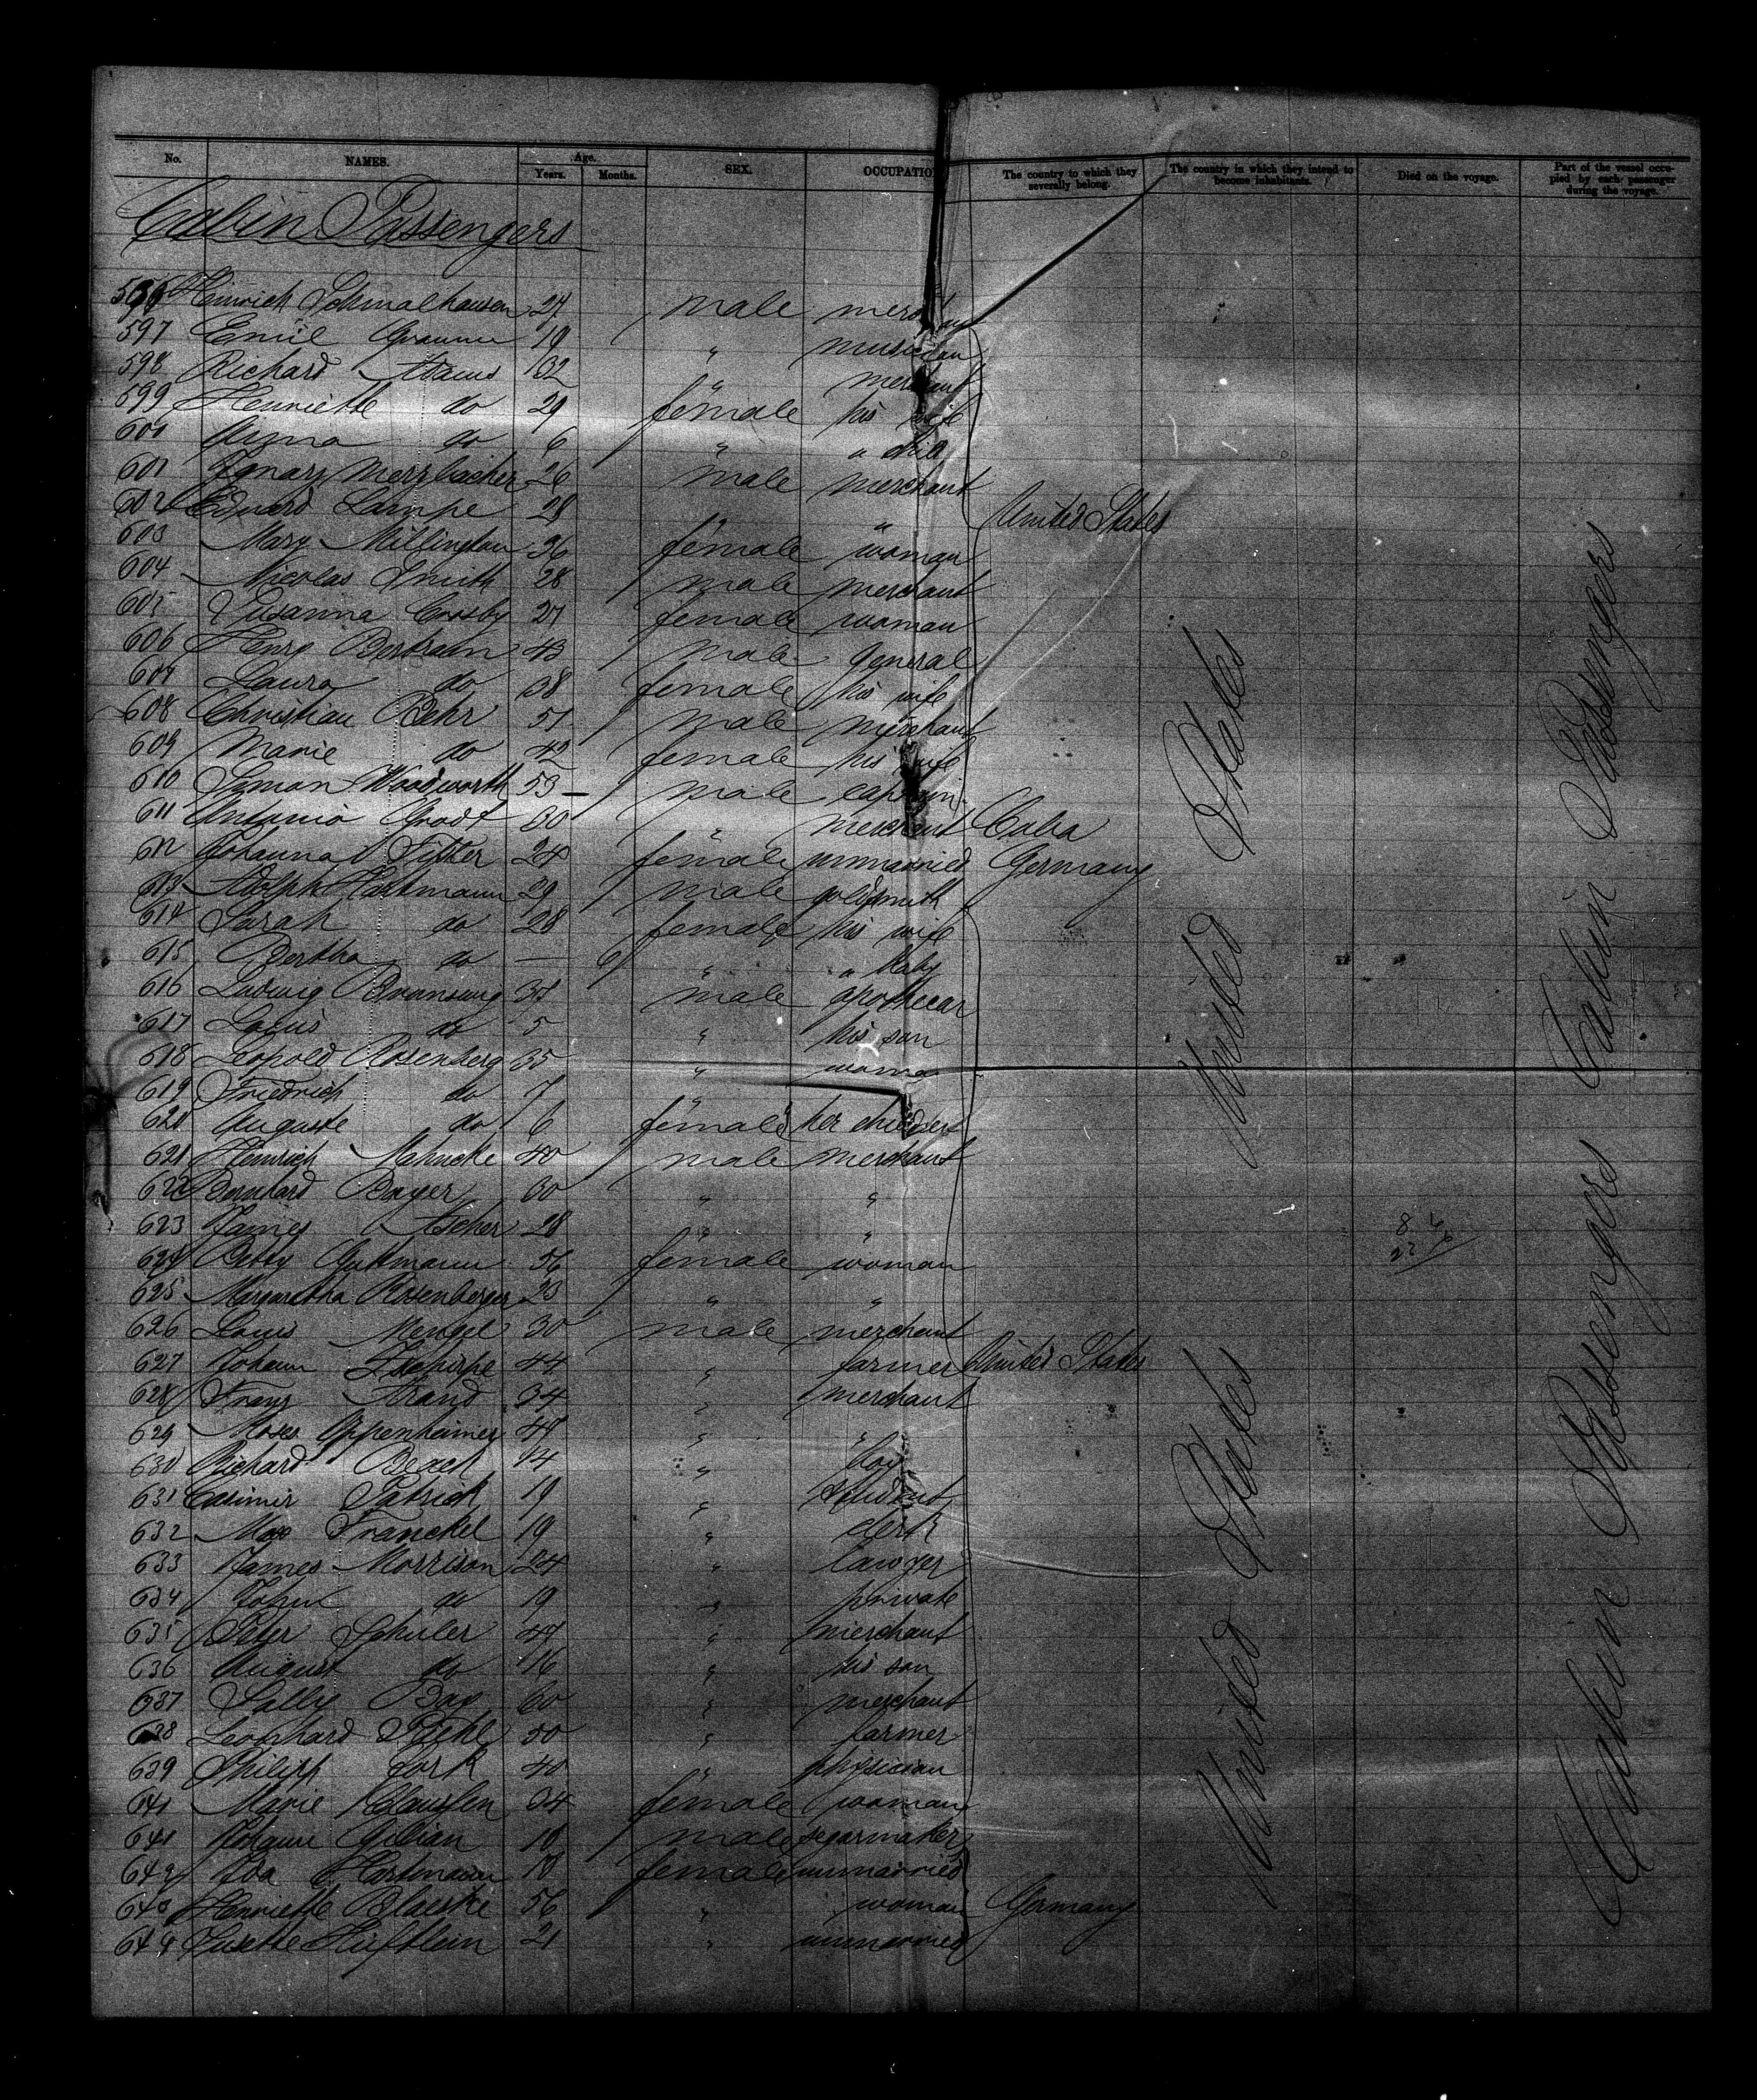 No. NAMES. Age. Years. Months. SEX. OCCUPATION The country to which they severally belong. The country in which they intend to become inhabitants. Died on the voyage. Part of the vessel occupied by each passenger during the voyage.
Cabin Passengers
596 Heinrich Schmalhausen 24 male merchant
597 Emil 19 " musician
598 Richard Adams 32 " merchant
599 Henriette do 29 female his wife
600 Anna do 6 " " child
601 Ignaz Merzbacher 26 male merchant
602 Eduard Lampe 28 " " United States
603 Mary Millington 36 female woman
604 Nicolas Smith 28 male merchant
605 Susanna Crosby 27 female woman
606 Henry Bertram 43 male general
607 Laura do 38 female his wife
608 Christian Behr 51 male merchant
609 Marie do 42 female his wife
610 Simon Woodworth 53 — male captain
611 Antonio 30 " merchant Cuba
612 Johanna 24 female unmarried Germany
613 Adolph Hartmann 29 male goldsmith
614 Sarah do 28 female his wife
615 Bertha do — 6 " " baby
616 Ludwig male apothecar
617 Louis do 5 " his son
618 Leopold Rosenberg 35 "
619 Friedrich do 7 "
620 Auguste do 6 female her children
621 Heinrich Mahncke 40 male merchant
622 Bernhard Bayer 30 " "
623 James Ascher 28 " "
624 Betty Gutmann 56 female woman
625 Margaretha Rosenberger 23 " "
626 Louis Mengel 30 male merchant
627 Johann 44 " farmer United States
628 Franz 34 " merchant
629 Moses Oppenheimer " "
630 Richard Beach 14 " boy
631 Casimir Patrick 19 " student
632 Max Franckel 19 " clerk
633 James Morrison 24 " lawyer
634 John do 19 " private
635 Peter Schuler " merchant
636 August do 16 " his son
637 Sally Bay 60 " merchant
638 Leonhard 50 " farmer
639 Philipp 40 " physician
Marie Claussen 34 female woman
641 Johann 18 male segarmaker
642 Ida Hartmann 18 female unmarried
643 Henriette Blaeske 56 " woman Germany
644 Lisette 21 " unmarried
United States United States
Cabin Passengers Cabin Passengers